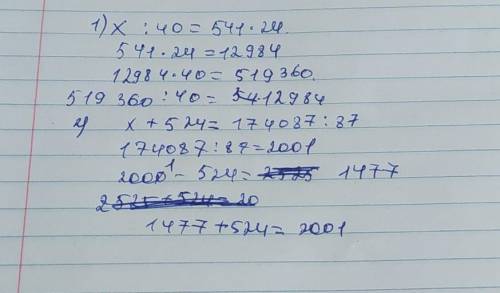 1) x : 40 = 541 · 24.
541 · 24 = 12984
12984 · 40 = 519360.
519 360 : 40 = 12984
2) x + 524 = 174087 : 87
174087 : 87 = 2001
2001 - 524 = 1477
1477 + 524 = 2001